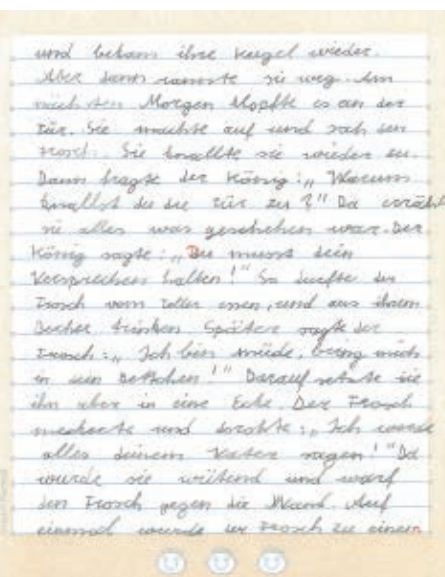 und bekam ihre Kugel wieder.
Aber dann rannte sie weg. Am
nächsten Morgen klopfte es an der
Tür. Sie machte auf und sah den
Frosch. Sie knallte sie wieder zu.
Dann fragte der König: „Warum
knallst du die Tür zu?" Da erzählt
sie alles was geschehen war. Der
König sagte: „Du musst dein
Versprechen halten!" So durfte der
Frosch vom Teller essen, und aus ihrem
Becher trinken. Später sagte der
Frosch: „Ich bin müde, bring mich
in dein Bettchen!" Darauf setzte sie
ihn aber in eine Ecke. Der Frosch
meckerte und drohte: „Ich werde
alles deinem Vater sagen!" Da
wurde sie wütend und warf
den Frosch gegen die Wand. Auf
einmal wurde der Frosch zu einem